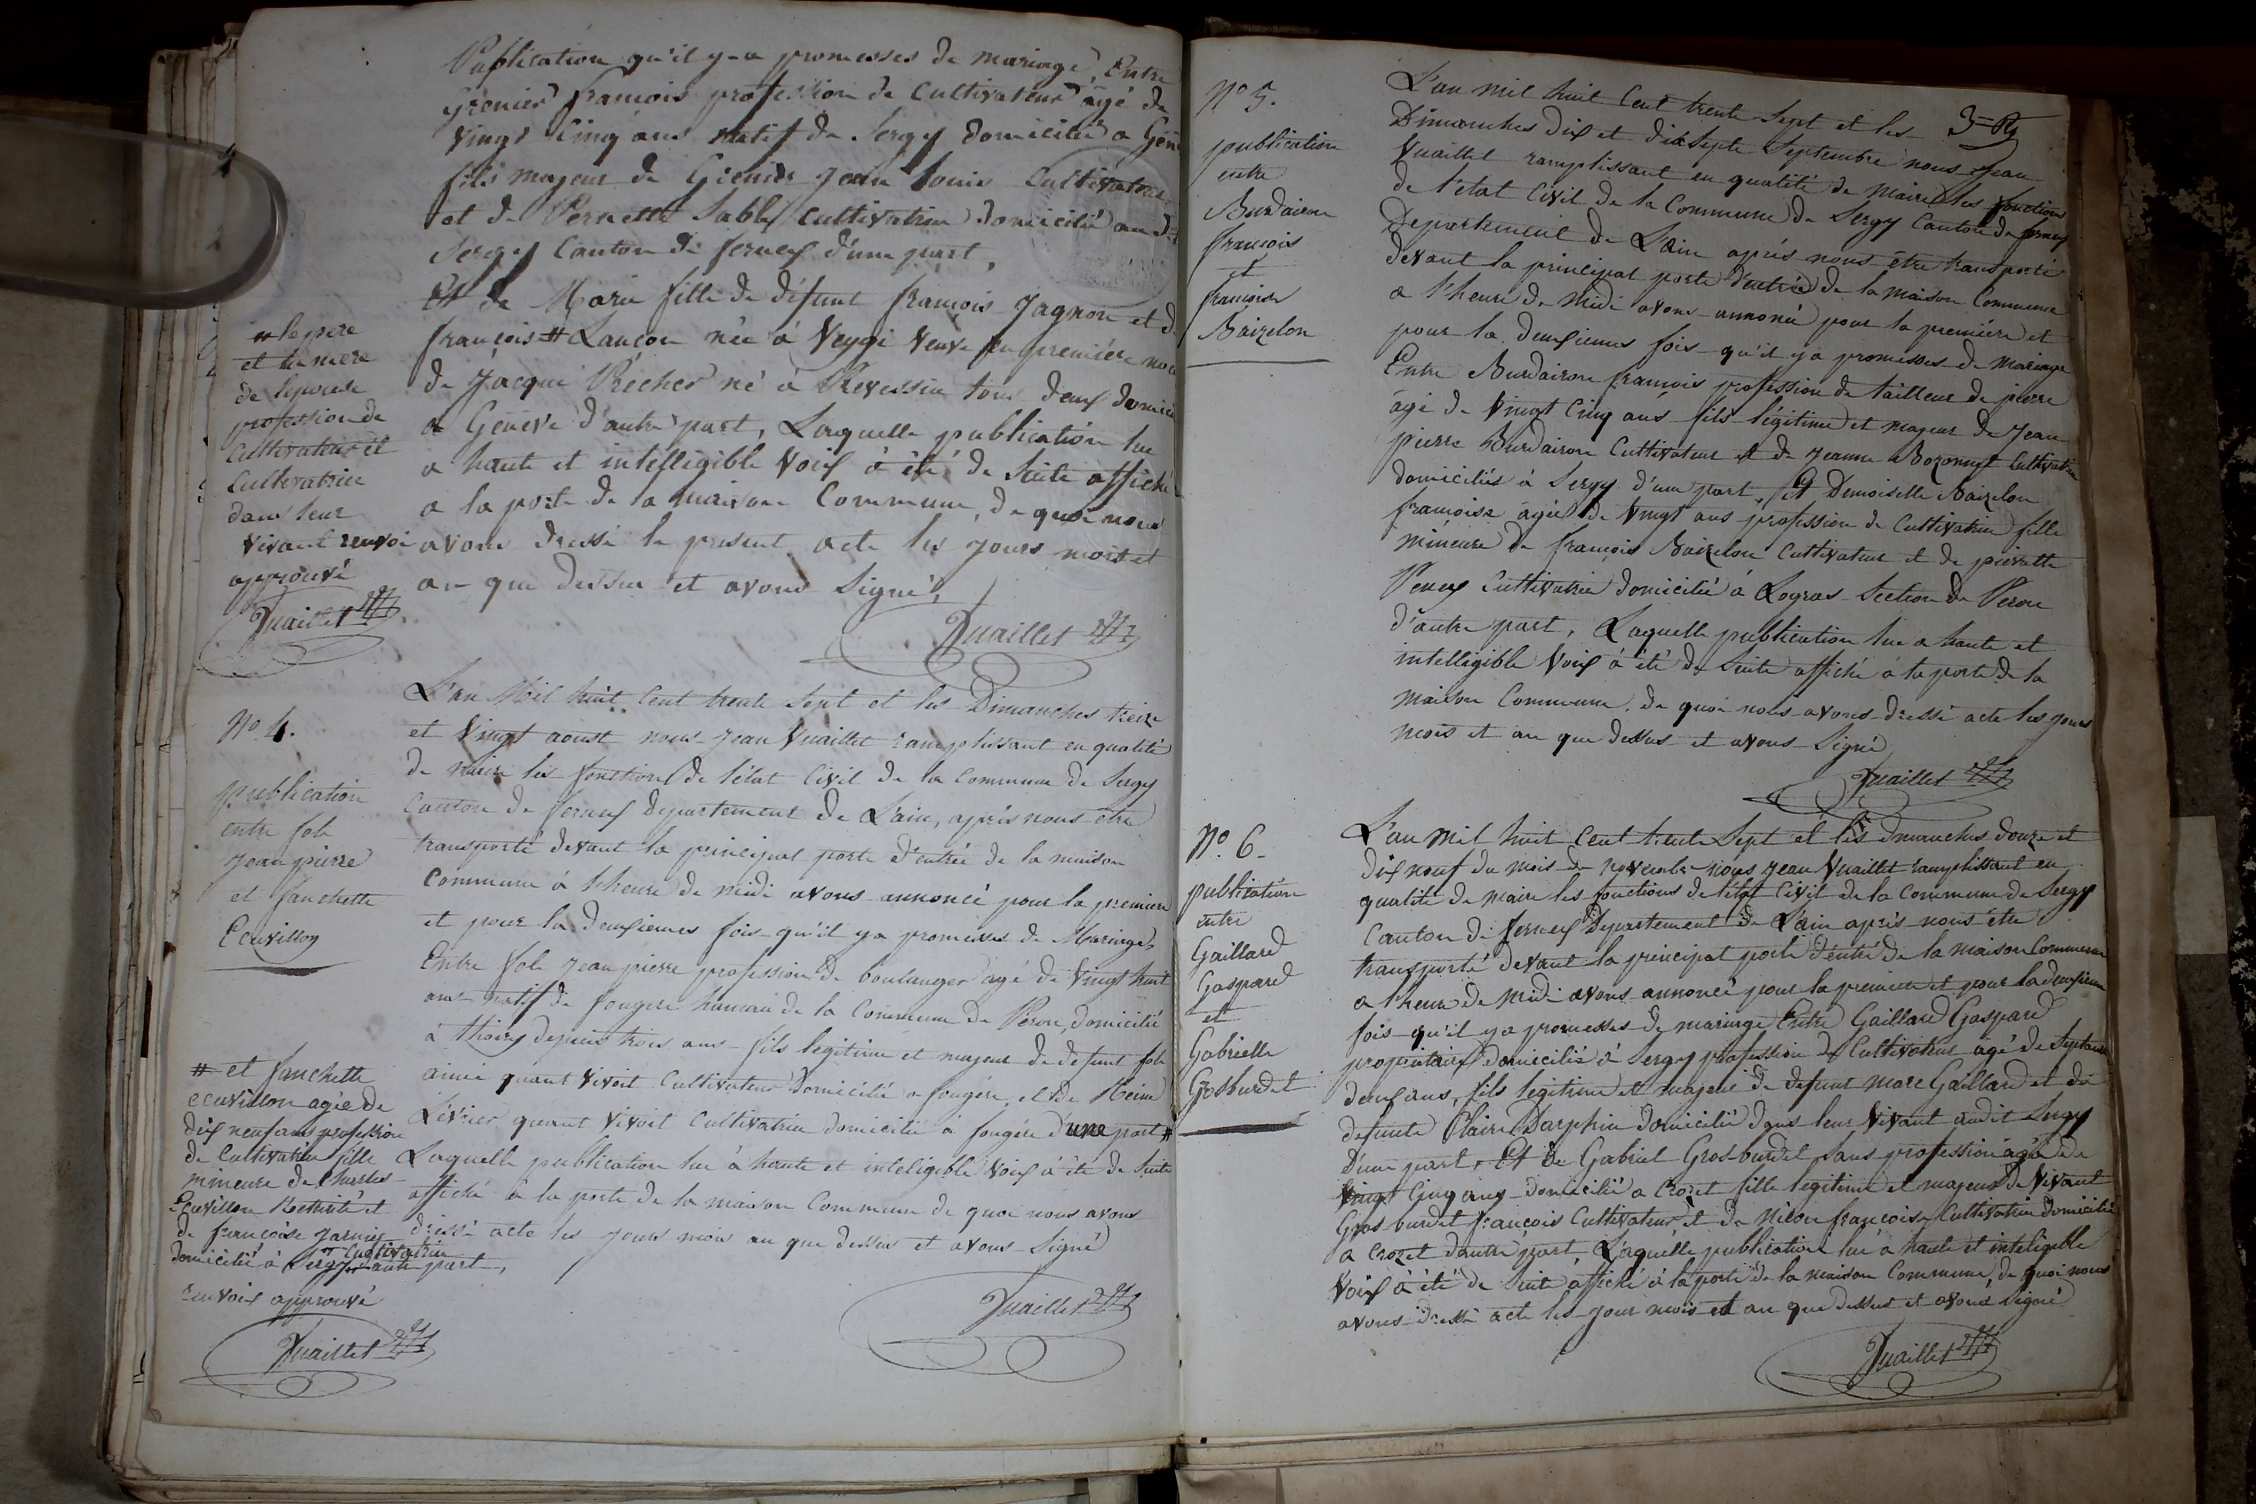 Publication qu'il y-a promesses de mariage, Entre
Grenier françois profession de Cultivateur agé de
vingt cinq ans natif de Sergy domicilié a Gen
fils majeur de Grenier Jean Louis Cultivateur
et de Pernette Sable cultivatrice domicilié au d
Sergy Canton de ferney d'une part,
Et de Marie fille de défunt françois Jagnon et d
françois # Lançon née à Veygi veuve en première noc
de Jacque Récher né à Prevessin tous deux domici
a Genève d'autre part, Laquelle publication lue
a haute et intelligible voix à été de suite affiché
a la porte de la maison Commune, de quoi nous
avons dressé le present acte les jours mois et
an que dessus et avons signé,
Vuaillet
# le pere
et la mere
de l'epouse
profession de
Cultivateur et
Cultivatrice
dans leur
vivant renvoi
approuvé
Vuaillet
No 4.
publication
entre fol
Jean pierre
et fanchette
Ecuvillon
L'an Mil huit Cent trente Sept et les Dimanches treize
et Vingt aoust nous Jean Vuaillet ramplissant en qualité
de maire les fonctions de l'état Civil de la Commune de Sergy
Canton de ferney departement de L'ain, après nous être
transporté devant la principal porte d'entrée de la maison
Commune à l'heure de midi avons annoncé pour la premiere
et pour la deuxiemes fois qu'il y a promesses de Mariage,
Entre fol Jean pierre profession de boulanger agé de Vingt huit
ans natif de fougere hameau de la Commune de Peron, domicilié
à thoiry depuis trois ans fils legitime et majeur de defunt fol
aimé quant vivoit Cultivateur domicilié a fougère et de Meine
Levrier quant vivoit Cultivatrice domicilié à fougère d'une part #
Laquelle publication lue à haute et inteligible voix à été de suite
affiché à la porte de la maison Commune de quoi nous avons
dressé acte les jours mois an que dessus et avons signé
Vuaillet
# et fanchette
ecuvillon agée de
dix neuf ans profession
de Cultivatrice fille
mineure de Charles
Ecuvillon Retraité et
de françoise Jarnier
Cultivatrice
domicilié à Sergy d'autre part,
renvois approuvé
Vuaillet
3me Rg
No 5.
publication
entre
Burdairon
françois
et
françoise
Baizelon
L'an mil huit Cent trente Sept et les
Dimanches Dix et dix Septe Septembre nous Jean
Vuaillet ramplissant en qualité de maire les fonctions
de l'etat Civil de la Commune de Sergy Canton de ferney
Departement de L'ain après nous être transporté
devant la principal porte d'entrée de la maison Commune
a l'heure de midi avons annoncé pour la première et
pour la deuxiemes fois qu'il y a promesses de mariage
Entre Burdairon françois profession de tailleur de pierre
agé de Vingt Cinq ans fils légitime et majeur de Jean
pierre Burdairon Cultivateur et de Jeanne Bozonnet Cultivatrice
domiciliés à Sergy d'une part, et Demoiselle Baizelon
françoise agée de Vingt ans profession de Cultivatrice fille
mineure de françois Baizelon Cultivateur et de pierrette
Peney Cultivatrice domicilié à Logras Section de Peron
d'autre part, Laquelle publication lue a haute et
intelligible voix à été de suite affiché à la porte de la
maison Commune, de quoi nous avons dressé acte les jours
mois et an que dessus et avons signé
Vuaillet
No. 6
publication
entre
Gaillard
Gaspard
et
Gabrielle
Grosburdet
L'an mil huit cent trente Sept et les dimanches douze et
dix neuf du mois de novembre nous Jean Vuaillet ramplissant en
qualité de maire les fonctions de l'état Civil de la Commune de Sergy
Canton de ferney departement de L'ain après nous être
transporté devant la principal porte d'entré de la maison Commune
a l'heure de midi avons annoncé pour la premiere et pour la deuxieme
fois qu'il y a promesses de mariage Entre Gaillard Gaspard
propriétaire domicilié à Sergy profession de Cultivateur agé de Septante
deux ans, fils legitime et majeur de defunt Marc Gaillard et de
defunte Claire Darphin domicilié dans leur vivant audit Sergy
D'une part, Et de Gabriel Grosburdet sans profession agée de
Vingt Cinq ans domicilié a Crozet fille legitime et majeur de vivant
Gros burdet françois Cultivateur et de Nicou françoise Cultivatrice domicilié
a Crozet d'autre part, Laquelle publication lue à haute et inteligible
voix à été de suite affiché à la porte de la maison Commune, de quoi nous
avons dressé acte les jour mois et an que dessus et avons signé
Vuaillet